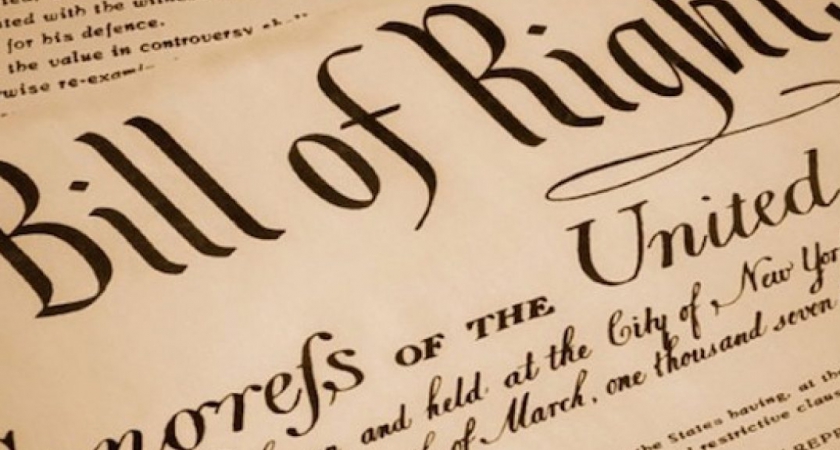 ted with the witn
for his defence.
the value in controversy shall
wise re-exam
Bill of Righ
ngreſs OF THE United
and held at the City of New Yor
of March, one thousand seven
the States having, at the
restrictive claus
REPR